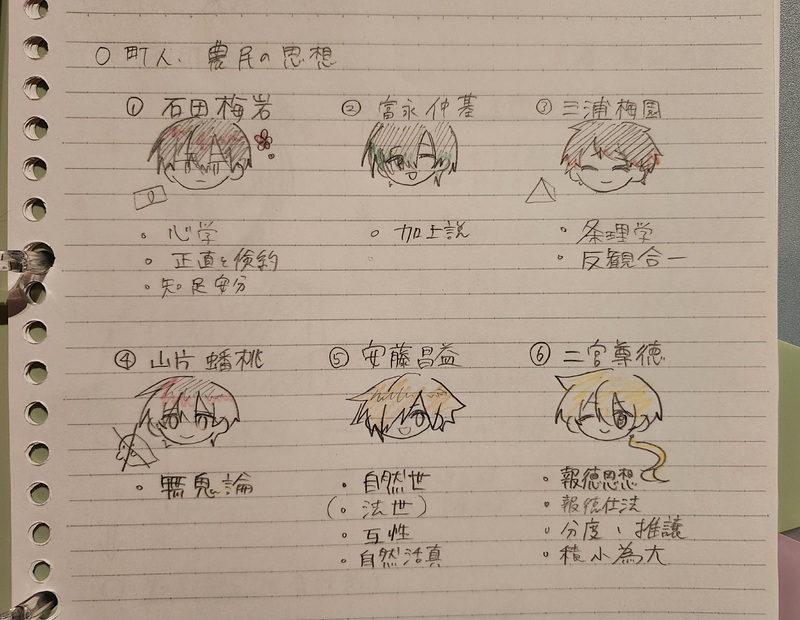 ○ 町人、農民の思想
① 石田梅岩
・心学
・正直と倹約
・知足安分
② 富永仲基
・加上説
③ 三浦梅園
・条理学
・反観合一
④ 山片蟠桃
・無鬼論
⑤ 安藤昌益
・自然世
(・法世)
・互性
・自然活真
⑥ 二宮尊徳
・報徳思想
・報徳仕法
・分度、推譲
・積小為大